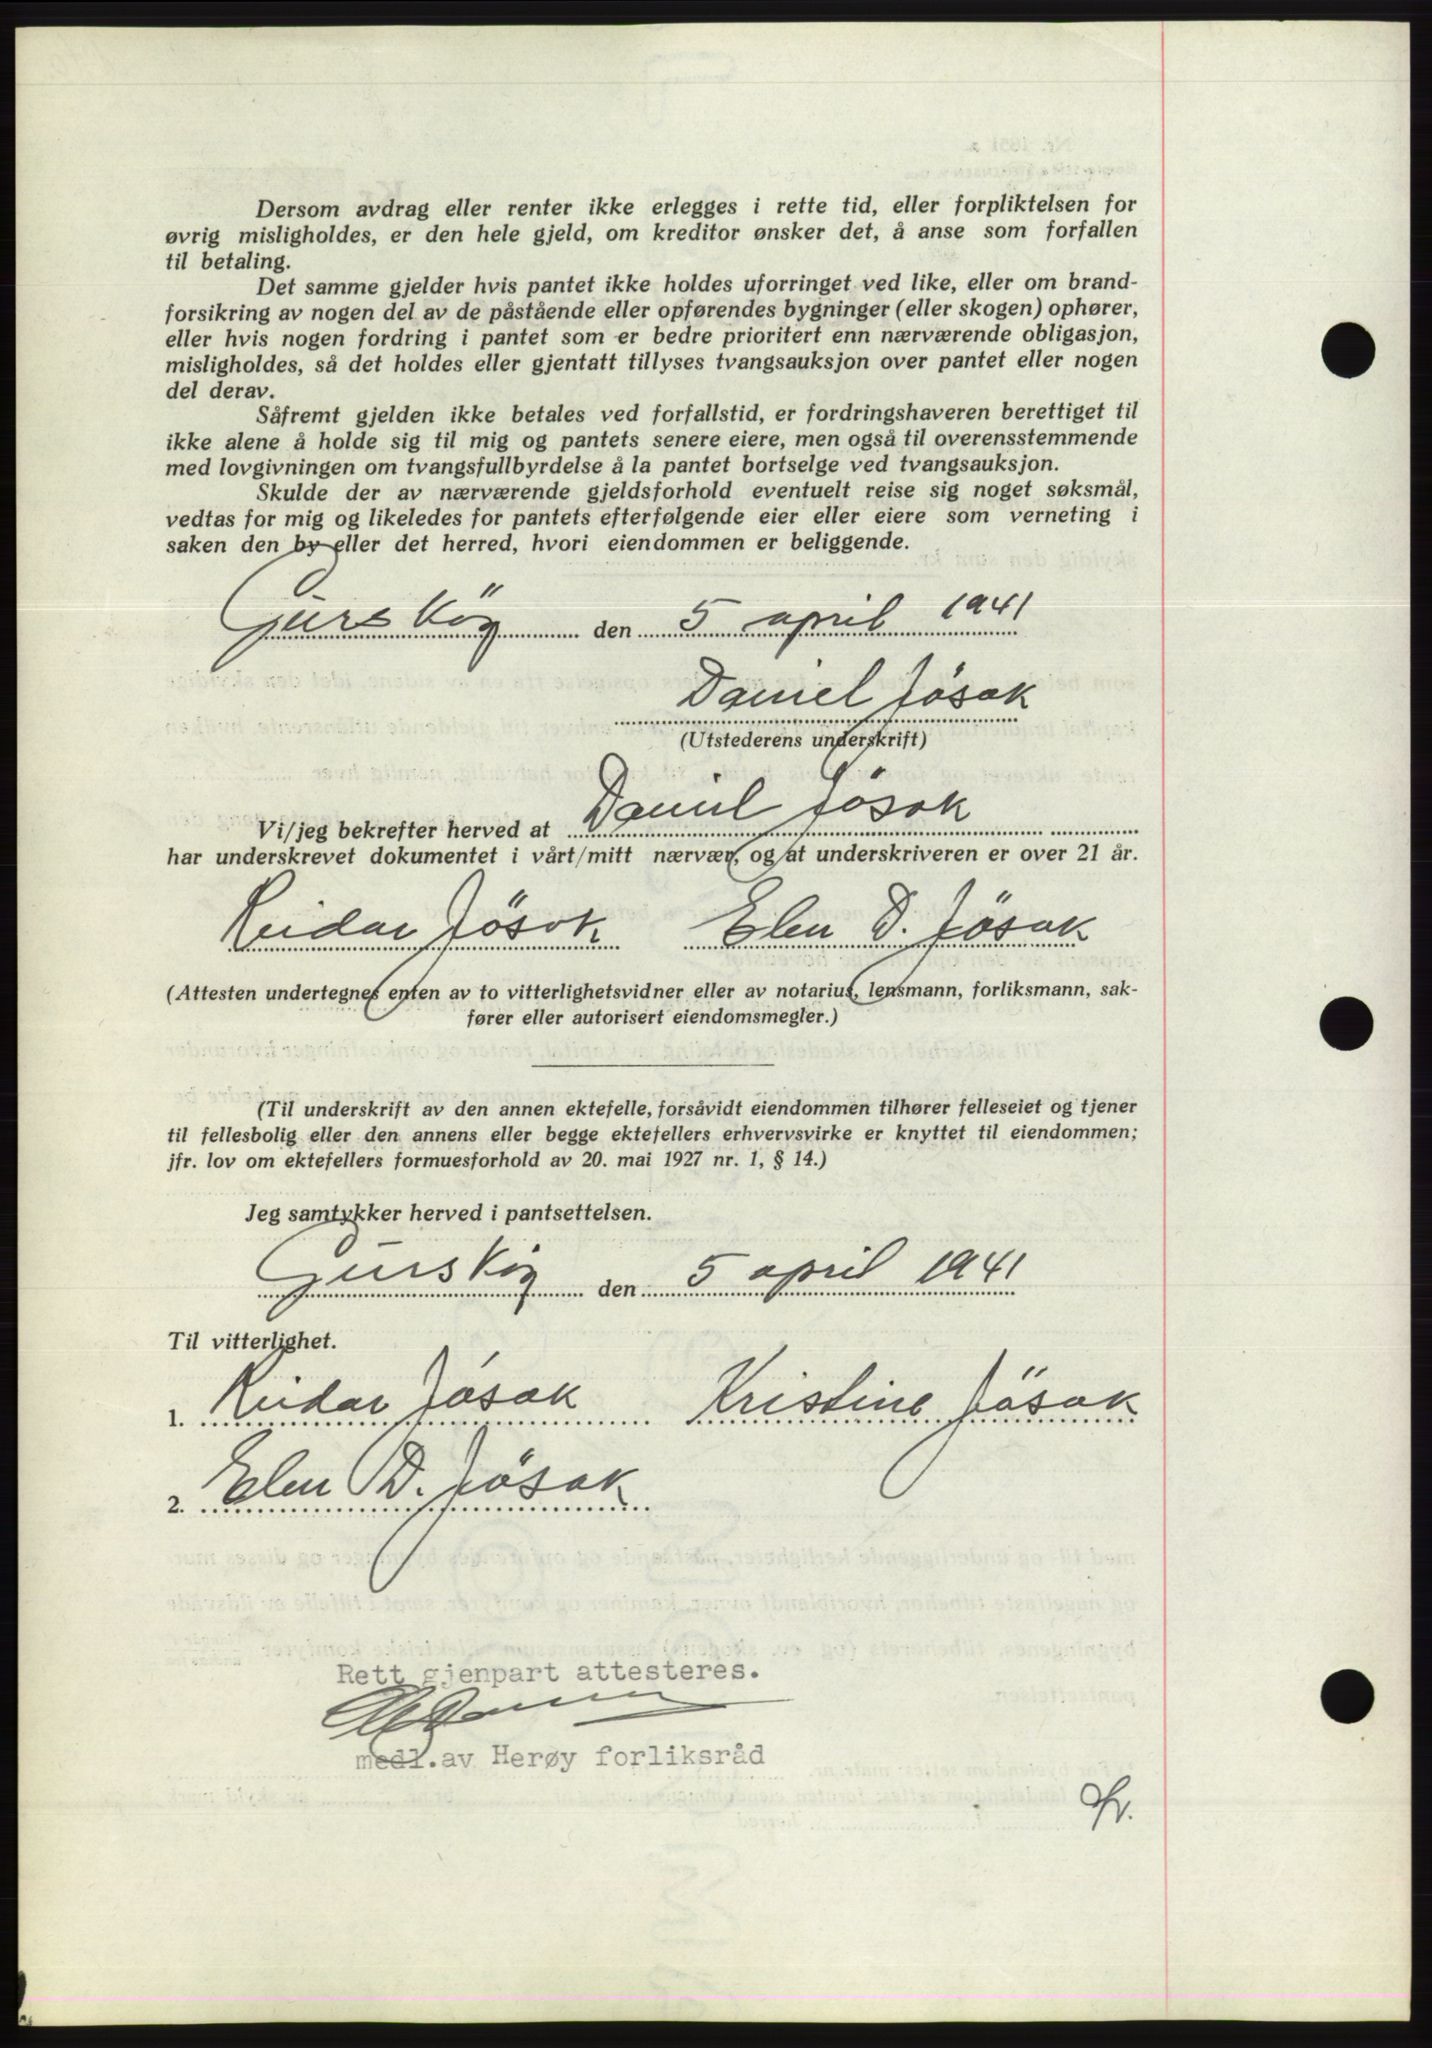 Dersom avdrag eller renter ikke erlegges i rette tid, eller forpliktelsen for
øvrig misligholdes, er den hele gjeld, om kreditor ønsker det, å anse som forfallen
til betaling.
Det samme gjelder hvis pantet ikke holdes uforringet ved like, eller om brand-
forsikring av nogen del av de påstående eller opførendes bygninger (eller skogen) ophører,
eller hvis nogen fordring i pantet som er bedre prioritert enn nærværende obligasjon,
misligholdes, så det holdes eller gjentatt tillyses tvangsauksjon over pantet eller nogen
del derav.
Såfremt gjelden ikke betales ved forfallstid, er fordringshaveren berettiget til
ikke alene å holde sig til mig og pantets senere eiere, men også til overensstemmende
med lovgivningen om tvangsfullbyrdelse å la pantet bortselge ved tvangsauksjon.
Skulde der av nærværende gjeldsforhold eventuelt reise sig noget søksmål,
vedtas for mig og likeledes for pantets efterfølgende eier eller eiere som verneting i
saken den by eller det herred, hvori eiendommen er beliggende.
Gursköy den 5 april 1941
Daniel Jösok
(Utstederens underskrift)
Vi/jeg bekrefter herved at Daniel Jösok
har underskrevet dokumentet i vårt/mitt nærvær, og at underskriveren er over 21 år.
Reidar Jösok Elen D. Jösok
(Attesten undertegnes enten av to vitterlighetsvidner eller av notarius, lensmann, forliksmann, sak-
fører eller autorisert eiendomsmegler.)
(Til underskrift av den annen ektefelle, forsåvidt eiendommen tilhører felleseiet og tjener
til fellesbolig eller den annens eller begge ektefellers erhvervsvirke er knyttet til eiendommen;
jfr. lov om ektefellers formuesforhold av 20. mai 1927 nr. 1, § 14.)
Jeg samtykker herved i pantsettelsen.
Gursköy den 5 april 1941
Til vitterlighet.
1. Reidar Jösok Kristine Jösok
2. Elen D. Jösok
Rett gjenpart attesteres.
medl.av Herøy forliksråd